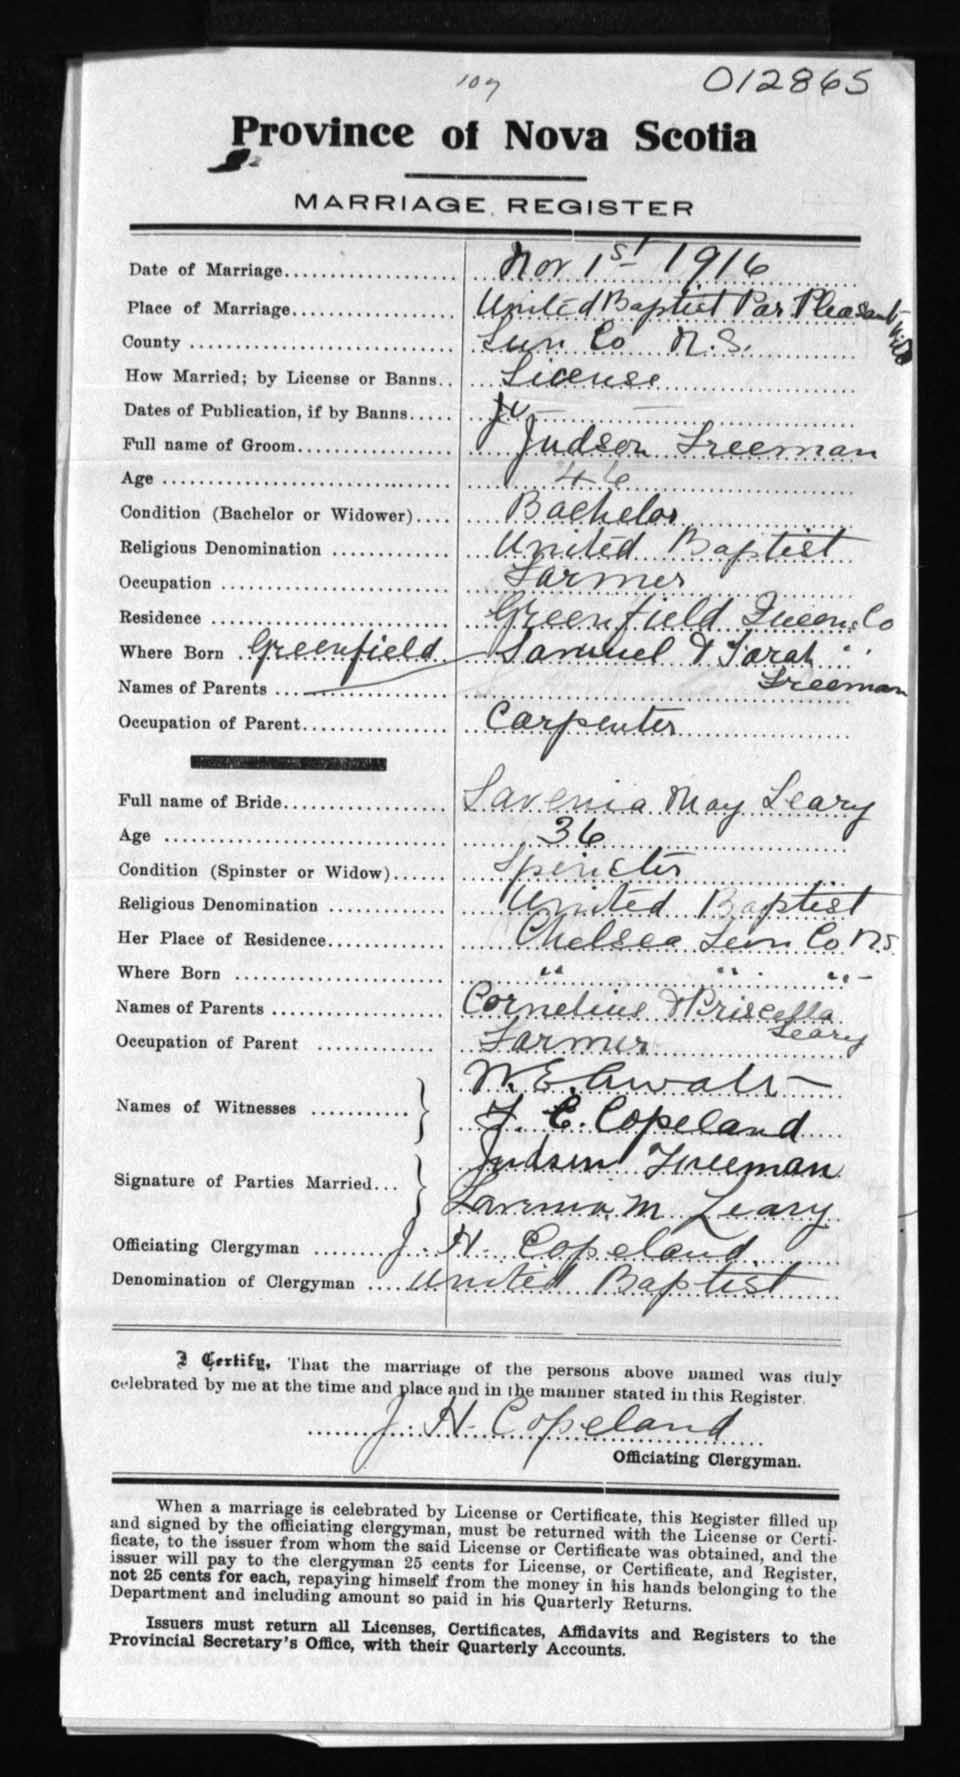 107
012865
Province of Nova Scotia
MARRIAGE REGISTER
Date of Marriage.................. Nov 1st 1916
Place of Marriage.................. United Baptist Par. Pleasant
County .................. Lun Co N.S.
How Married; by License or Banns.. License
Dates of Publication, if by Banns.....
Full name of Groom.................. Judson Freeman
Age .................. 46
Condition (Bachelor or Widower).... Bachelor
Religious Denomination ............ United Baptist
Occupation .................. Farmer
Residence .................. Greenfield Queens Co
Where Born . Greenfield Samuel & Sarah
Names of Parents ... Freeman
Occupation of Parent.................. Carpenter
Full name of Bride.................. Lavenia May Leary
Age .................. 36
Condition (Spinster or Widow)...... Spincter
Religious Denomination ............ United Baptist
Her Place of Residence............. Chelsea Lun Co N.S.
Where Born .................. " " "
Names of Parents .................. Cornelius & Priscella
Leary
Occupation of Parent ............ Farmer
W. E.
Names of Witnesses ...........
C. Copeland
Judson Freeman
Signature of Parties Married...
Lavenia M Leary
Officiating Clergyman ........ J. H. Copeland
Denomination of Clergyman .... United Baptist
I Certify, That the marriage of the persons above named was duly
celebrated by me at the time and place and in the manner stated in this Register.
J. H. Copeland
Officiating Clergyman.
When a marriage is celebrated by License or Certificate, this Register filled up
and signed by the officiating clergyman, must be returned with the License or Certi-
ficate, to the issuer from whom the said License or Certificate was obtained, and the
issuer will pay to the clergyman 25 cents for License, or Certificate, and Register,
not 25 cents for each, repaying himself from the money in his hands belonging to the
Department and including amount so paid in his Quarterly Returns.
Issuers must return all Licenses, Certificates, Affidavits and Registers to the
Provincial Secretary's Office, with their Quarterly Accounts.